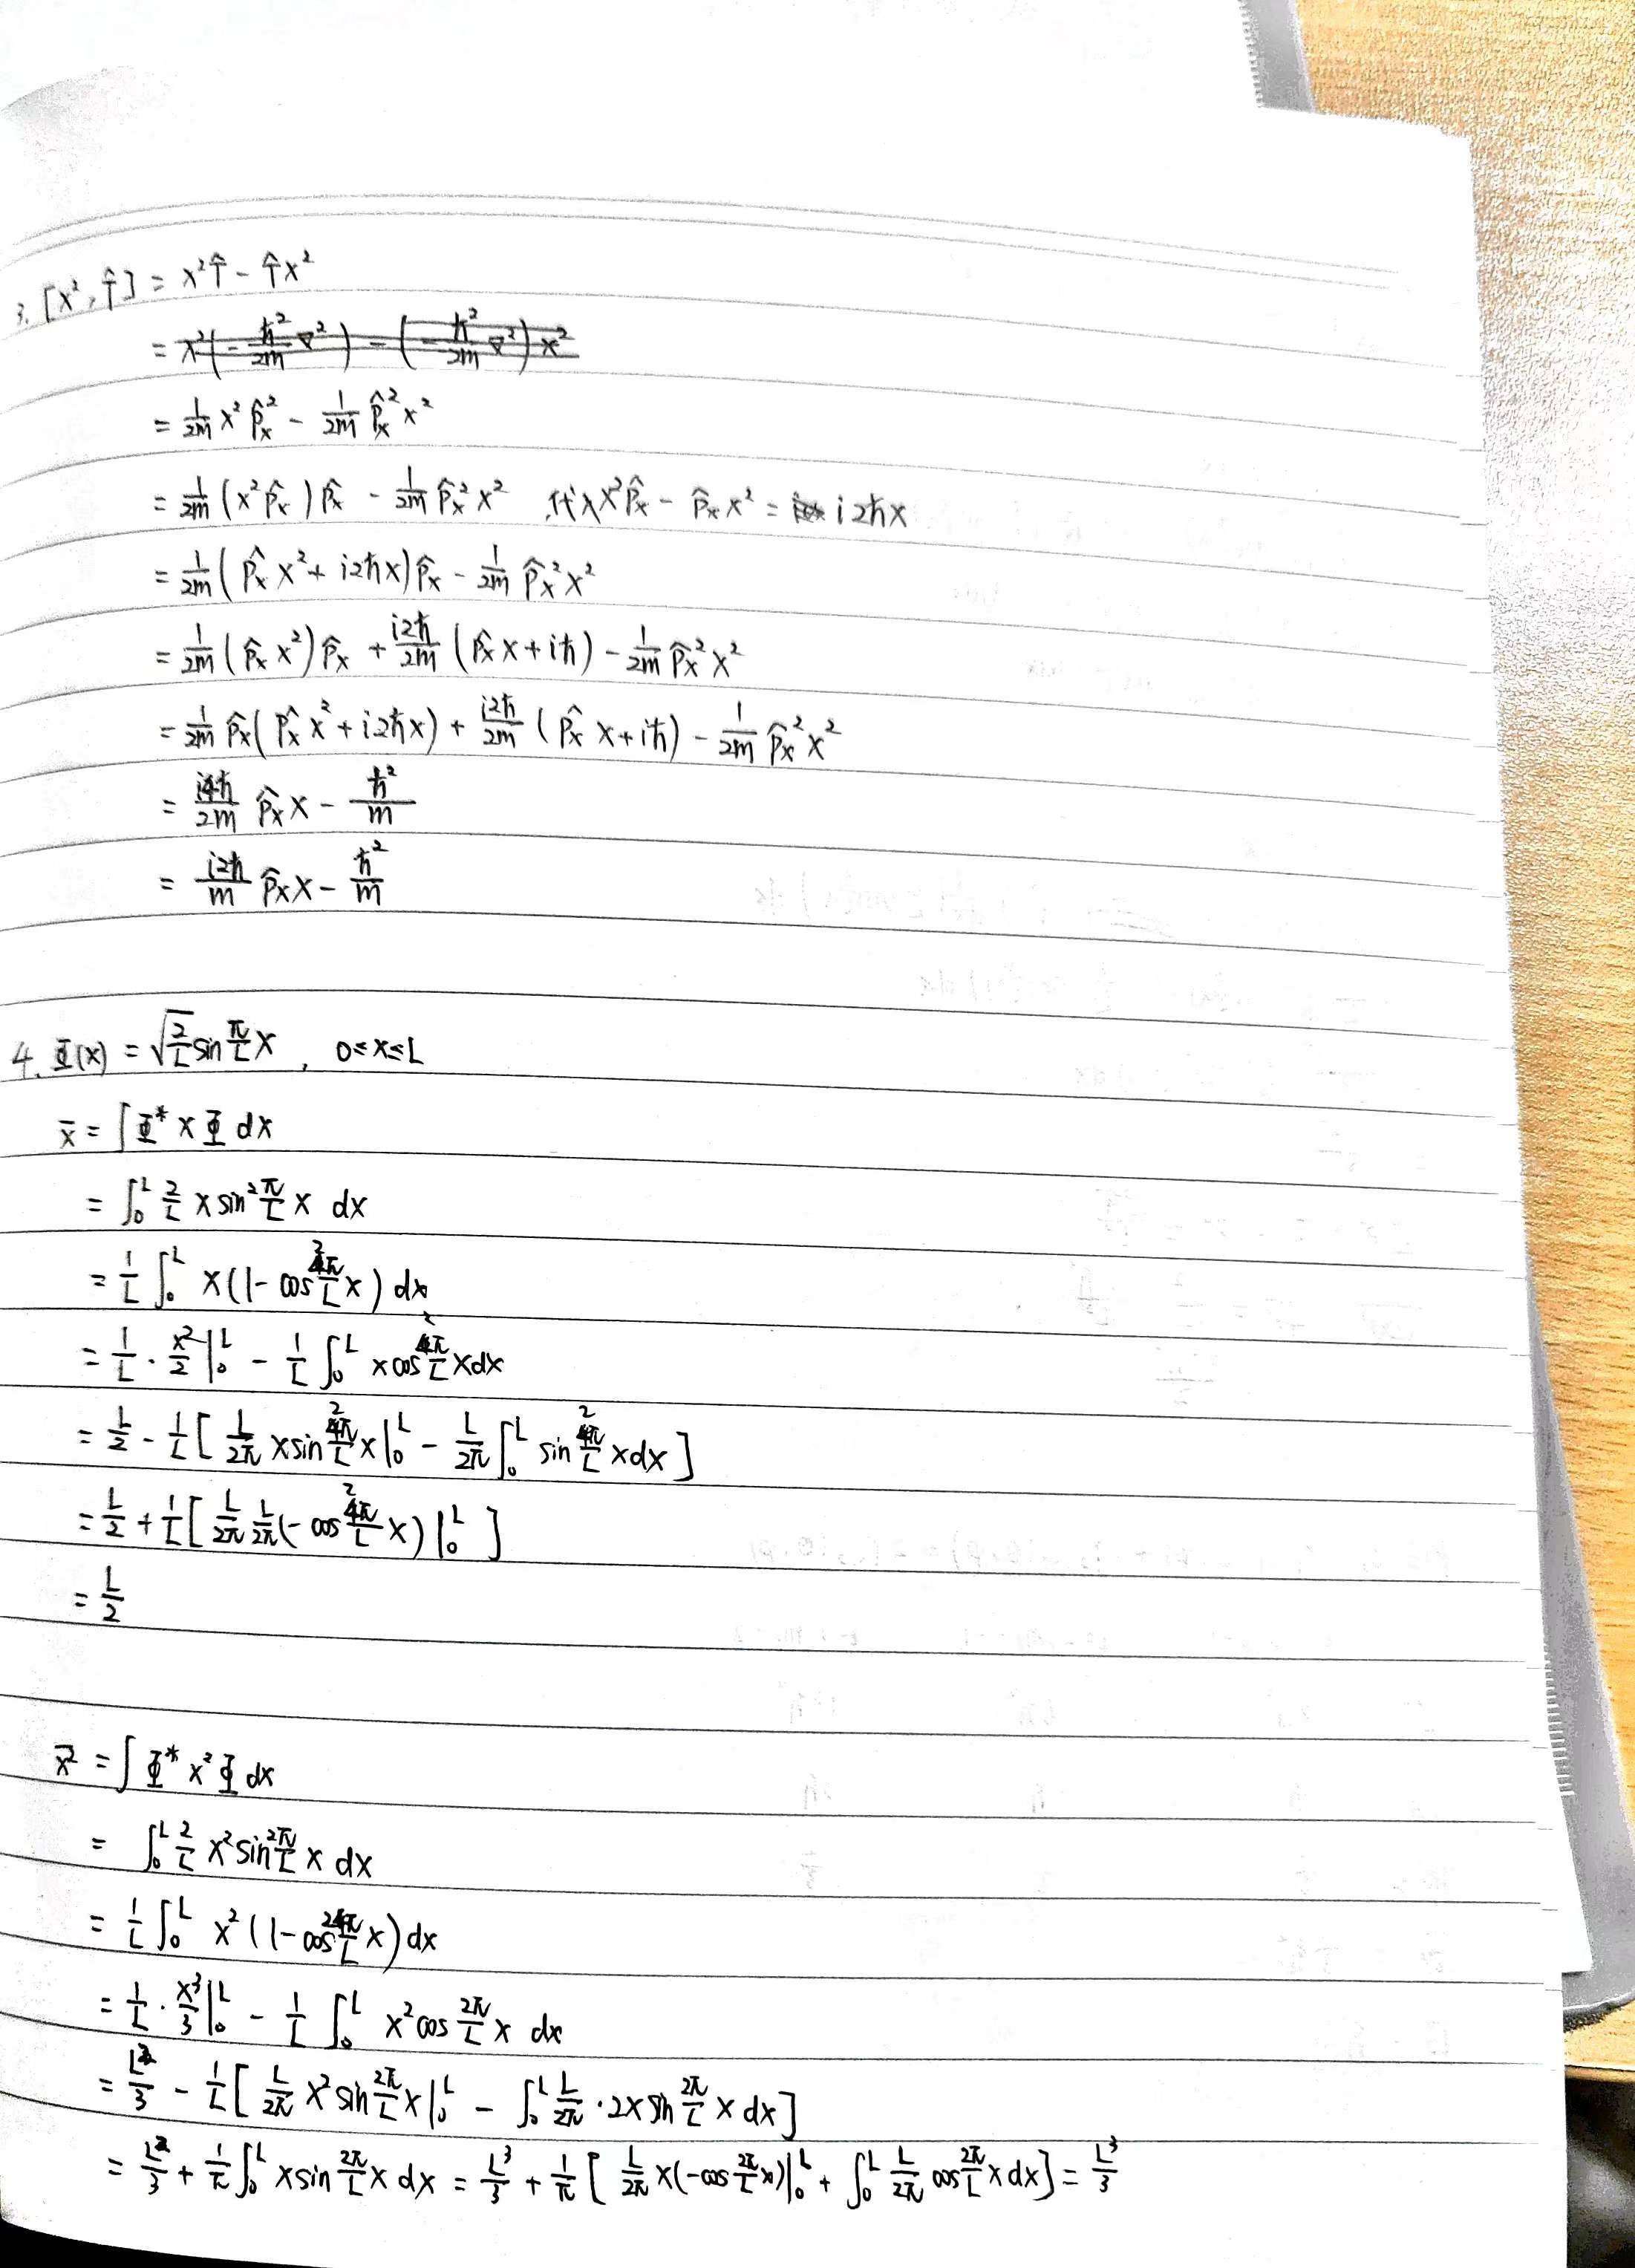 3. [x², T̂] = x²T̂ - T̂x²
= x²(-ℏ²/2m ∇²) - (-ℏ²/2m ∇²)x²
= 1/2m x² p̂ₓ² - 1/2m p̂ₓ² x²
= 1/2m (x² p̂ₓ) p̂ₓ - 1/2m p̂ₓ² x² 代入 x² p̂ₓ - p̂ₓ x² = i2ℏx
= 1/2m (p̂ₓ x² + i2ℏx) p̂ₓ - 1/2m p̂ₓ² x²
= 1/2m (p̂ₓ x²) p̂ₓ + i2ℏ/2m (p̂ₓ x + iℏ) - 1/2m p̂ₓ² x²
= 1/2m p̂ₓ (p̂ₓ x² + i2ℏx) + i2ℏ/2m (p̂ₓ x + iℏ) - 1/2m p̂ₓ² x²
= i4ℏ/2m p̂ₓ x - ℏ²/m
= i2ℏ/m p̂ₓ x - ℏ²/m
4. Φ(x) = √(2/L) sin π/L x , 0≤x≤L
x̄ = ∫ Φ* x Φ dx
= ∫₀ᴸ 2/L x sin² π/L x dx
= 1/L ∫₀ᴸ x (1 - cos 2π/L x) dx
= 1/L · x²/2 |₀ᴸ - 1/L ∫₀ᴸ x cos 2π/L x dx
= L/2 - 1/L [ L/2π x sin 2π/L x |₀ᴸ - L/2π ∫₀ᴸ sin 2π/L x dx ]
= L/2 + 1/L [ L/2π L/2π (- cos 2π/L x) |₀ᴸ ]
= L/2
x̄² = ∫ Φ* x² Φ dx
= ∫₀ᴸ 2/L x² sin² π/L x dx
= 1/L ∫₀ᴸ x² (1 - cos 2π/L x) dx
= 1/L · x³/3 |₀ᴸ - 1/L ∫₀ᴸ x² cos 2π/L x dx
= L²/3 - 1/L [ L/2π x² sin 2π/L x |₀ᴸ - ∫₀ᴸ L/2π · 2x sin 2π/L x dx ]
= L²/3 + 1/π ∫₀ᴸ x sin 2π/L x dx = L³/3 + 1/π [ L/2π x (- cos 2π/L x) |₀ᴸ + ∫₀ᴸ L/2π cos 2π/L x dx ] = L³/3